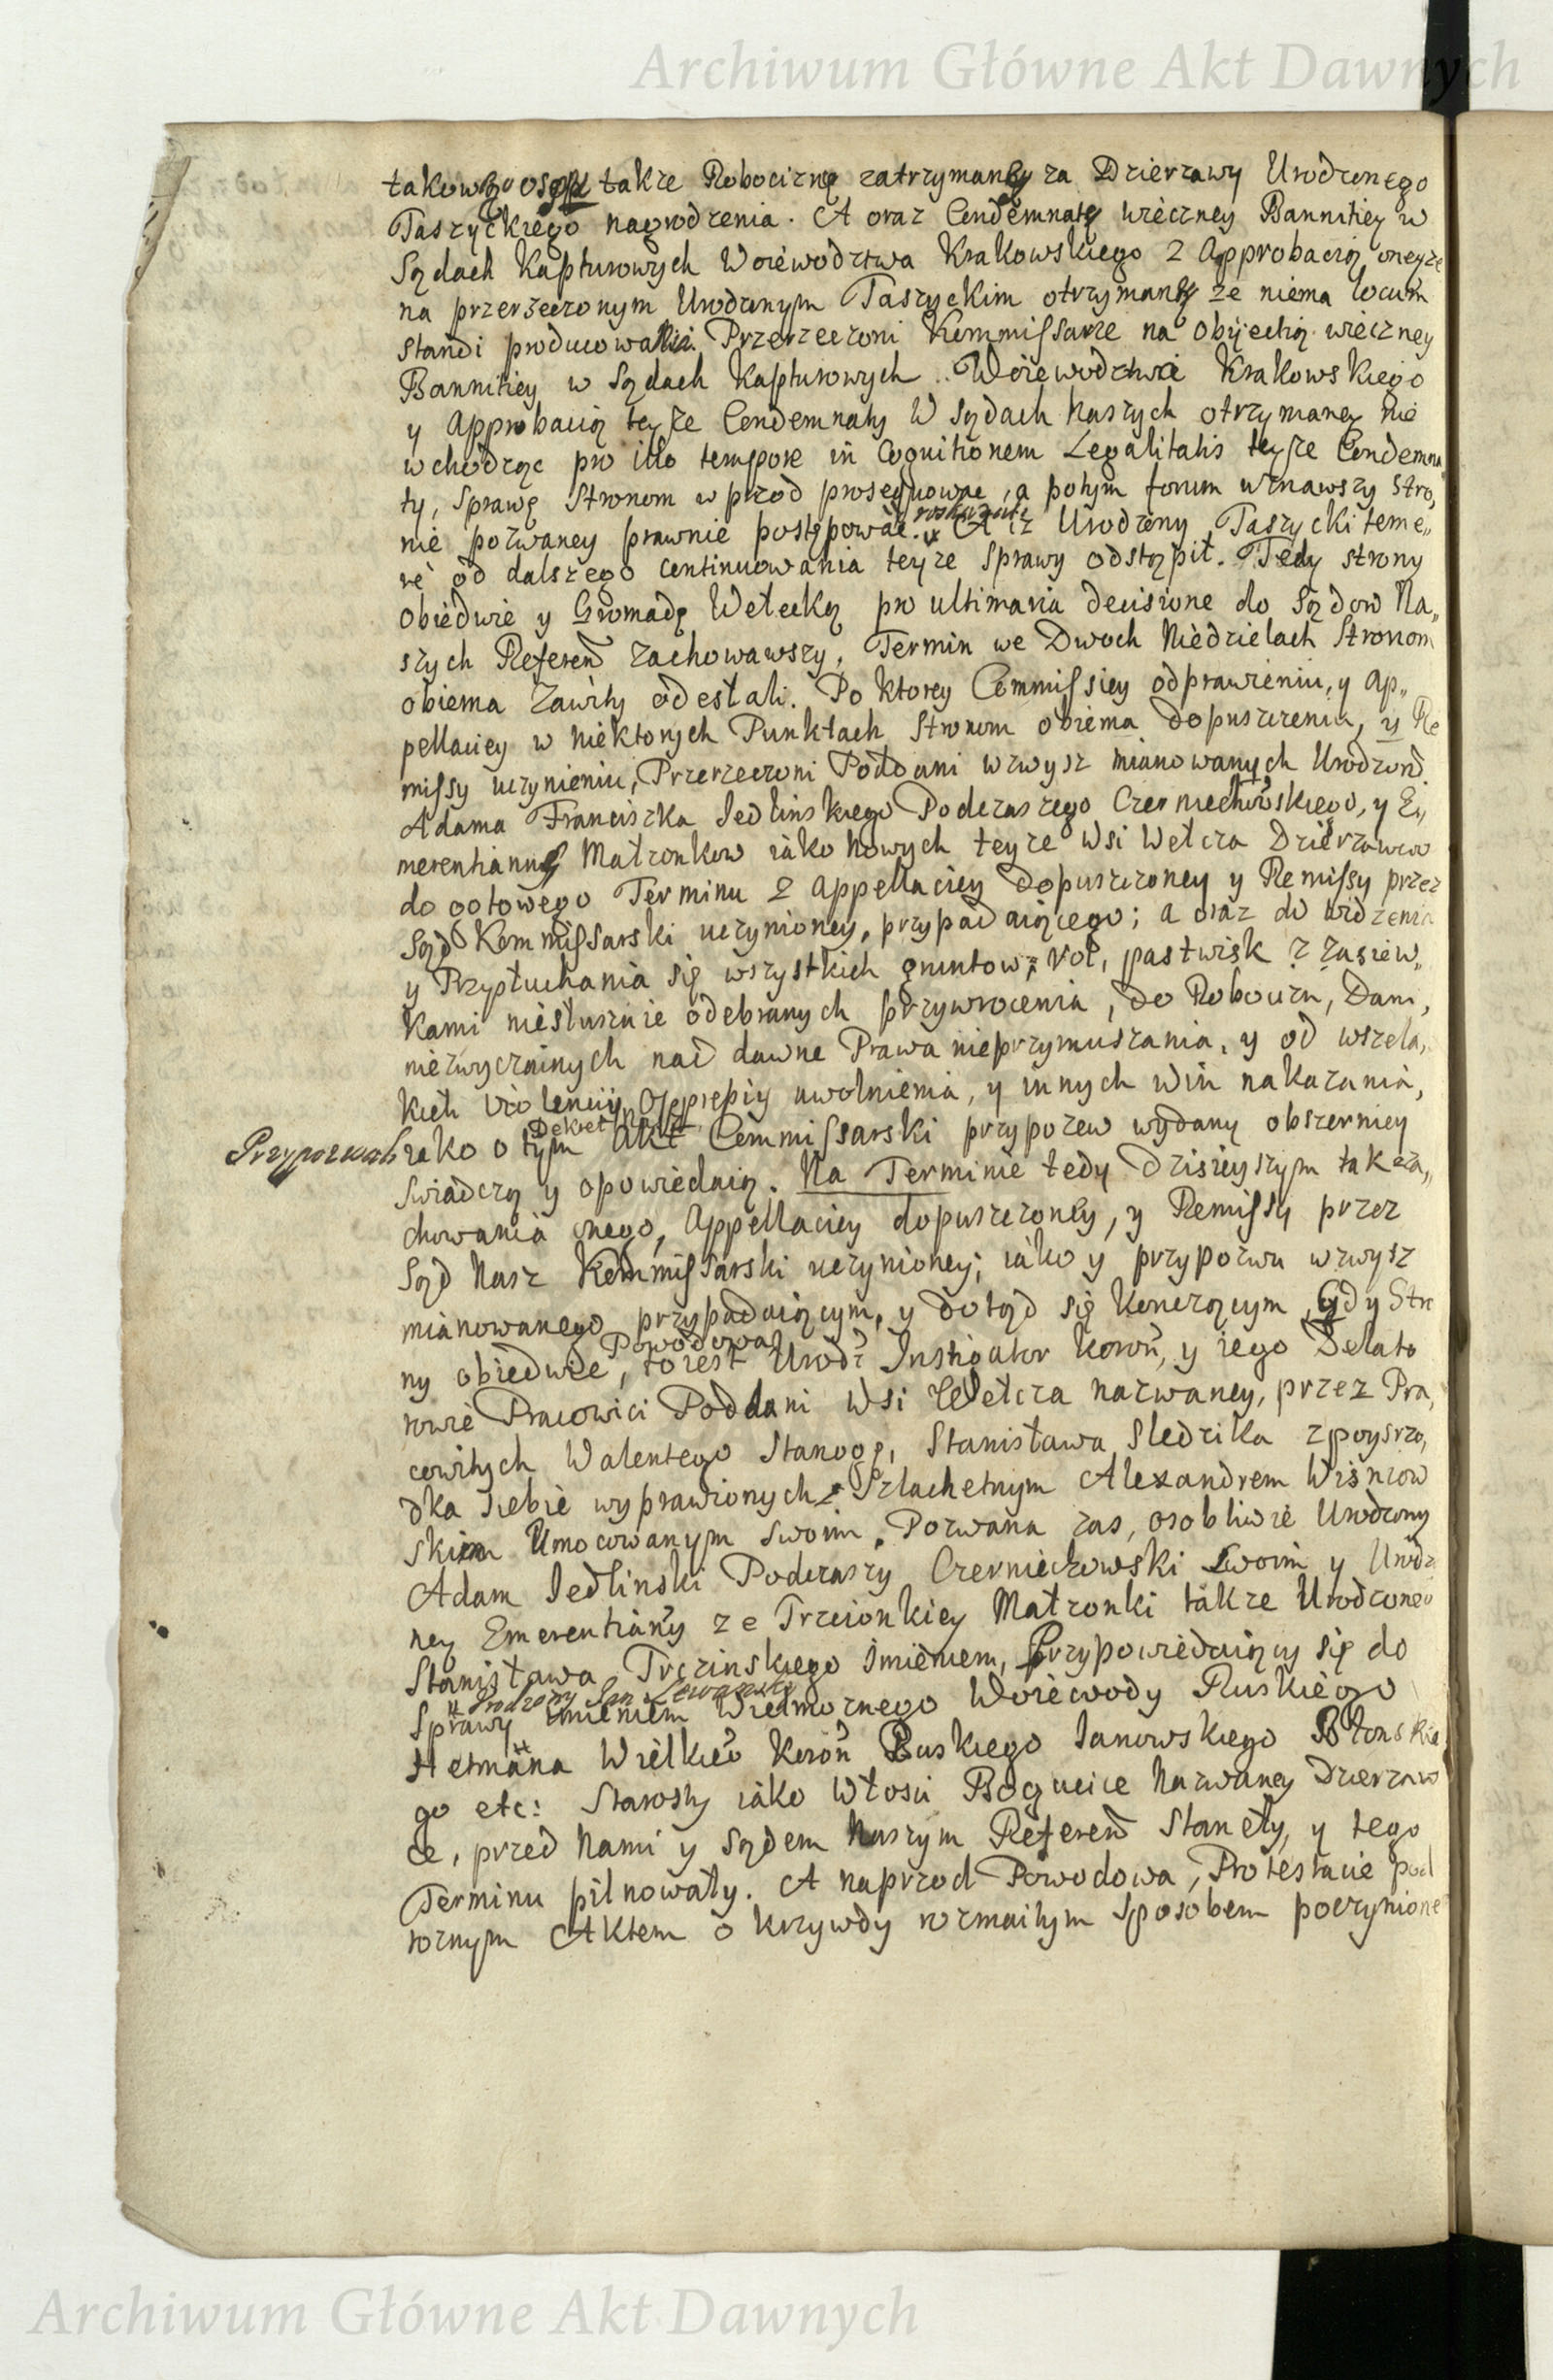 Archiwum Główne Akt Dawnych
takowego osepu takze Robociznę zatrzymaney za Dzierzawy Urodzonego
Taszyckiego nagrodzenia. A oraz Condemnatę wieczney Bannitiey w
Sądach Kapturowych Woiewodztwa Krakowskiego z Approbacią oneyze
na przerzeczonym Urodzonym Taszyckim otrzymaną ze niema locum
standi producowali. Przerzeczoni Kommissarze na obijectią wieczney
Bannitiey w Sądach Kapturowych Woiewodztwa Krakowskiego
y Approbacią teyze Condemnaty w Sądach Naszych otrzymaney nie
wchodząc pro illo tempore in Cognitionem Legalitatis teyze Condemna„
ty, Sprawę Stronom wprzod prosequowac, a potym forum uznawszy Stro„
nie pozwaney prawnie postępować roskazali. A iz Urodzony Taszycki teme„
re od dalszego continuowania teyze Sprawy odstąpił. Tedy strony
obiedwie y Gromadę Wełecką pro ultimaria decisione do Sądow Na„
szych Referen̄d zachowawszy, Termin we Dwoch Niedzielach Stronom
obiema zawity odesłali. Po ktorey Commissiey odprawieniu, y Ap„
pellaciey w niektorych Punktach Stronom obiema dopuszczeniu, y Re
missy uczynieniu, Przerzeczoni Poddani wzwysz mianowanych Urodzon̄
Adama Franciszka Jedlinskiego Podczaszego Czerniechowskiego, y E„
merentianny Małzonkow iako Nowych teyze Wsi Wełcza Dzierzawcow
do gotowego Terminu z Appellaciey dopuszczoney y Remissy przez
Sąd Kommissarski uczynioney, przypadaiącego; a oraz do widzenia
y Przysłuchania się wszystkich gruntow, rol, pastwisk z zasiew„
kami niesłusznie odebranych przywrocenia, do Robocizn, Dani,
niezwyczainych nad dawne Prawa nieprzymuszania, y od wszela„
kich violencij, Oppressiy uwolnienia, y innych win nakazania,
Przypozwali iako o tym Dekret Akt Commissarski przypozew wydany obszerniey
swiadczą y opowiedaią. Na Terminie tedy dzisieyszym tak za„
chowania onego, Appellaciey dopuszczoney, y Remissy przez
Sąd Nasz Kommissarski uczynioney; iako y przypozwu wzwysz
mianowanego przypadaiącym, y dotąd się konczącym, gdy Stro
ny obiedwie, Powodowa to iest Urodz: Instigator Koron̄, y iego Delato
rowie Pracowici Poddani Wsi Wełcza nazwaney, przez Pra„
cowitych Walentego Stanogę, Stanisława Sledzika zposrzo„
dka siebie wyprawionych z Szlachetnym Alexandrem Wisniow
skim Umocowanym swoim. Pozwana zas, osobliwie Urodzony
Adam Jedlinski Podczaszy Czerniechowski swoim y Urodzo
ney Emerentianny ze Trzcionkiey Małzonki takze Urodzonego
Stanisława Trczinskiego Imieniem, Przypowiedaiący się do
Sprawy Urodzony Jan imieniem Wielmoznego Woiewody Ruskiego
Hetmana Wielkiego Koron̄ Buskiego Janowskiego Błonskie
go etc: Starosty iako Włosci Bogucice Nazwaney Dzierzaw
ce, przed Nami y Sądem Naszym Referen̄d Stanęły, y tego
Terminu pilnowały. A naprzod Powodowa, Protestacie pod
roznym Aktem o krzywdy rozmaitym sposobem poczynione
Archiwum Główne Akt Dawnych